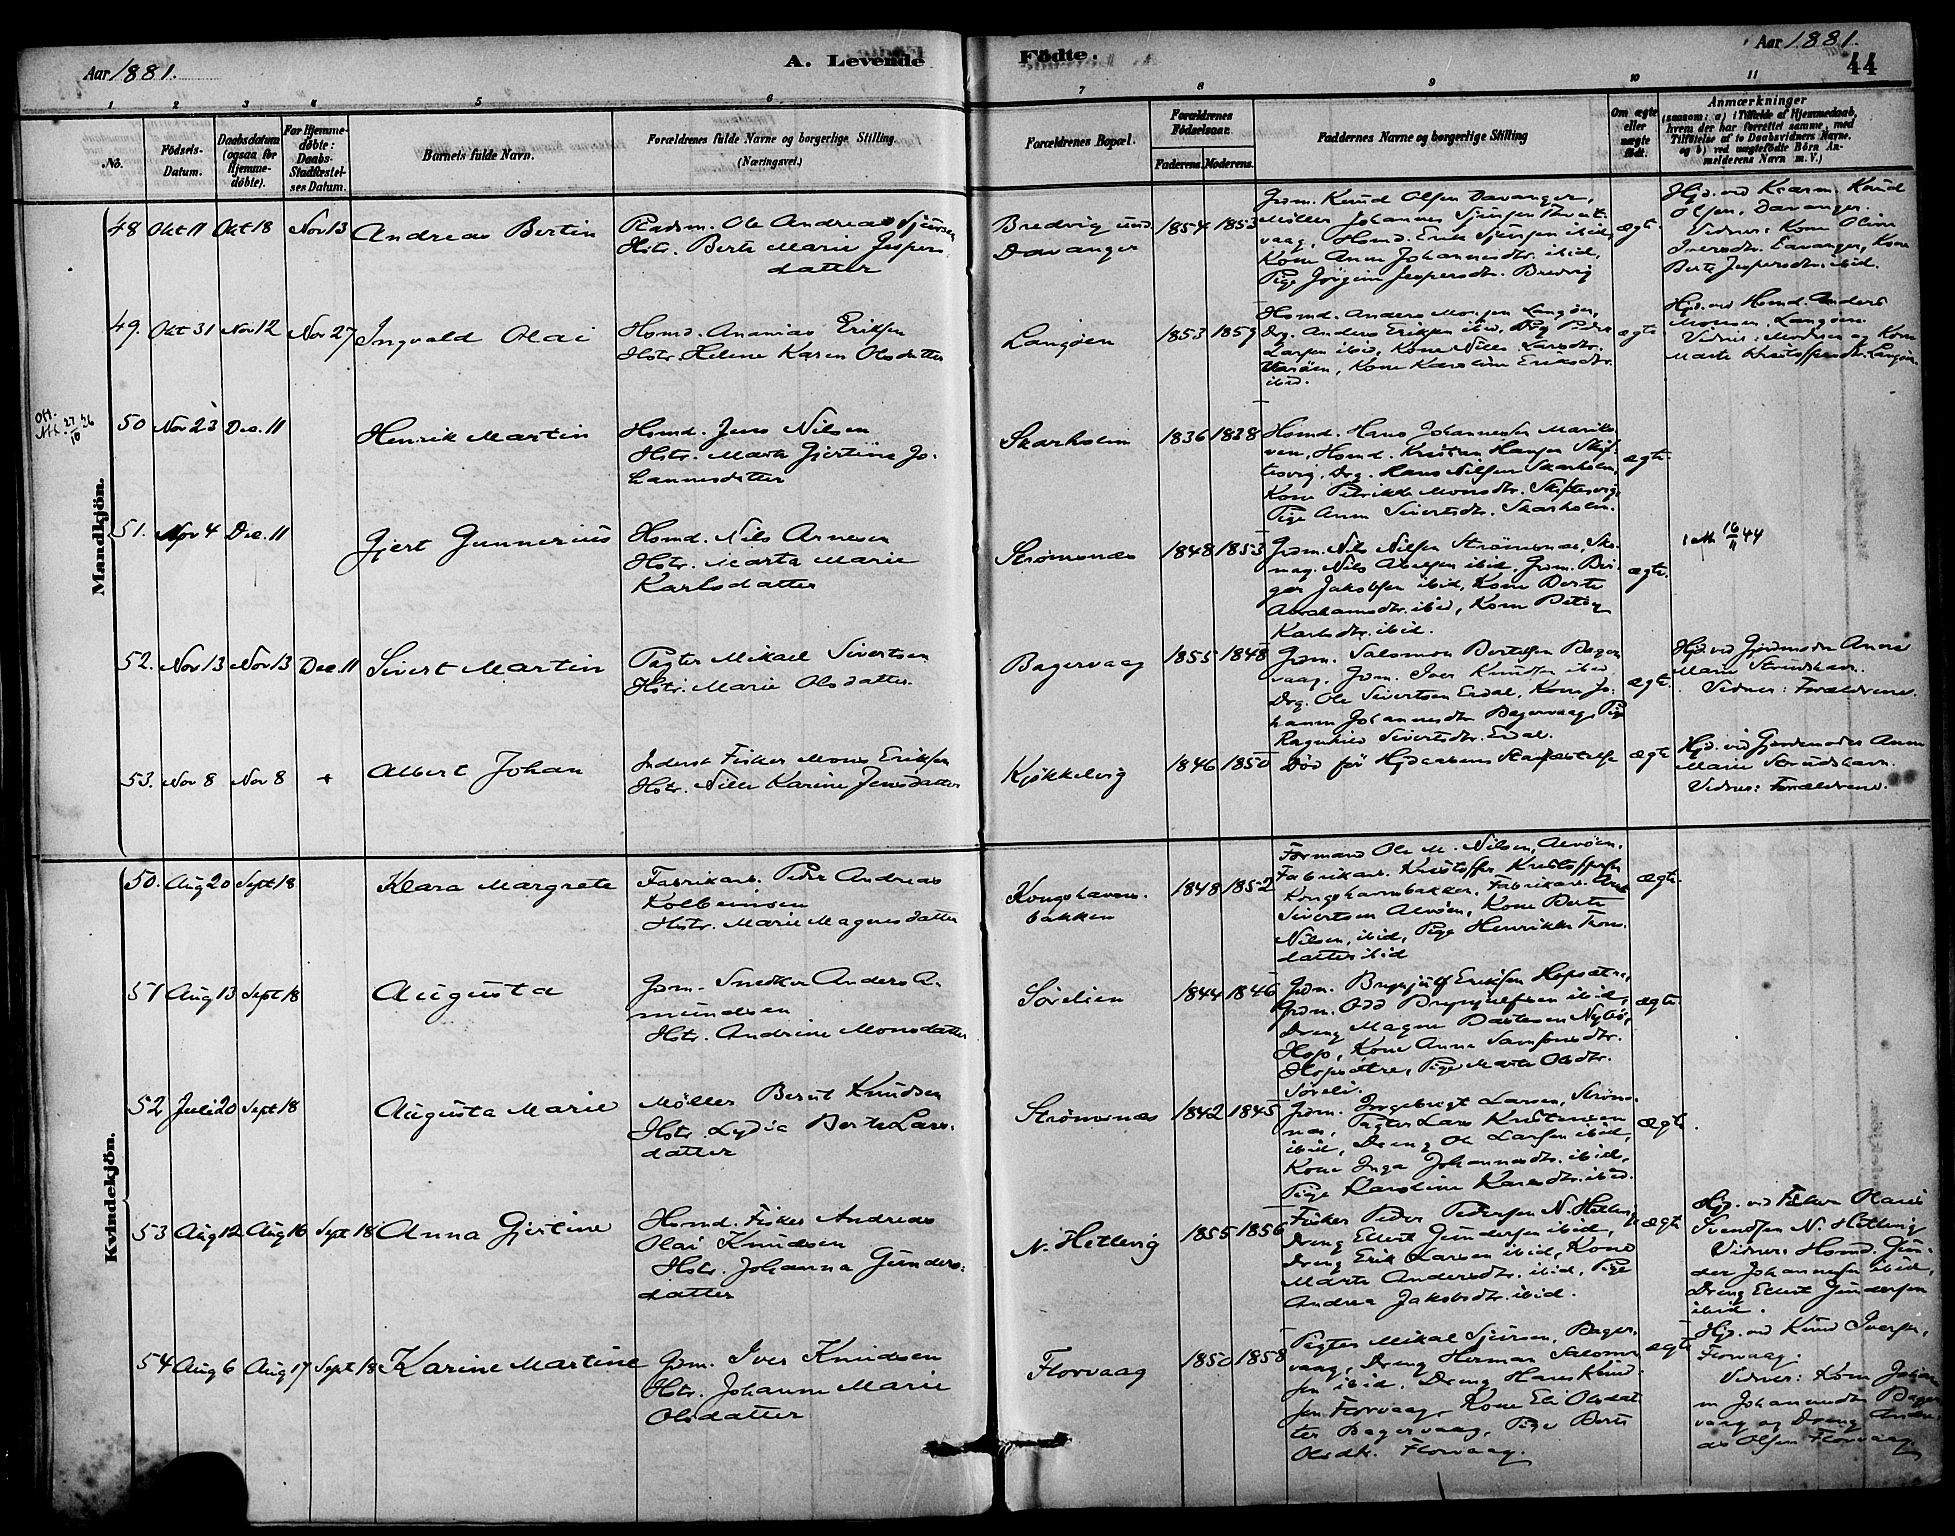 Aar 1881.
A. Levende
Födte.
Aar 1881.
44
1 2 3 4 5 6 7 8 9 10 11
No.
Födsels-
Datum.
Daabsdatum
(ogsaa for
Hjemme-
døbte).
For Hjemme-
døbte:
Daabs-
Stadfæstel-
ses Datum.
Barnets fulde Navn.
Forældrenes fulde Navne og borgerlige Stilling.
(Næringsvei.)
Forældrenes Bopæl.
Forældrenes
Födselsaar.
Faderens. Moderens.
Faddernes Navne og borgerlige Stilling
Om ægte
eller
uægte
født.
Anmærkninger
(saasom: a) i Tilfælde af Hjemmedaab,
hvem der har forrettet samme, med
Tilføielse af to Daabsvidners Navne,
og b) ved uægtefødte Börn An-
melderens Navn m. V.)
Mandkjön.
48 Okt 11 Okt 18 Nov 13 Andreas Bertin
Pladsm. Ole Andreas Sjursen
Hstr. Berte Marie Jespers
datter
Bredvig und.
Davanger
1854 1853
Grdm. Knud Olsen Davanger,
Møller Johannes Sjursen
vaag, Hsmd. Erik Sjursen ibid,
Kone Anna Johannesdtr. ibid,
Pige Jørgine Jespersdtr. Bredvig
ægte
Hjd. ved Kræm. Knud
Olsen, Davanger.
Vidner: Kone Oline
Iversdtr. Davanger, Kone
Berte Jespersdtr. ibid.
49. Okt 31 Nov 12 Nov 27 Ingvald Olai
Hsmd. Ananias Eriksen
Hstr. Helene Karen Olsdatter
Langøen
1853 1859
Hsmd. Anders Monsen Langøen,
Drg. Anders Eriksen ibid, Drg Peder
Larsen ibid, Kone Nille Larsdtr.
Kone Karoline Eriksdtr.
ibid.
ægte
Hjd. ved Hsmd. Anders
Monsen, Langøen.
Vidner: Moderen og Kone
Marte Kristoffersdtr. Langøen
Att. 27/10 26
50 Nov 23 Dec. 11 Henrik Martin
Hsmd. Jens Nilsen
Hstr. Marte Gjertine Jo-
hannesdatter
Skarholm
1836 1838
Hsmd. Hans Johannesen
ven, Hsmd. Kristian Hansen Skif-
tesvig, Drg. Hans Nilsen Skarholm,
Kone Monsdtr. Skiftesvig,
Pige Anna Sivertsdtr. Skarholm.
ægte
51. Nov 4 Dec. 11 Gjert Gunnerius
Hsmd. Nils Arnesen
Hstr. Marta Marie
Karlsdatter
Strømsnæs
1848 1853
Grdm. Nils Nilsen Strømsnæs, Sko-
mag. Nils ibid, Grdm. Bir-
ger Jakobsen ibid, Kone Berte
Abrahamsdtr. ibid, Kone
Karlsdtr. ibid.
ægte.
1 att. 16/11 44
52. Nov 13 Nov 13 Dec. 11 Sivert Martin
Pagter Mikael Sivertsen
Hstr. Marie Olsdatter.
Bagervaag
1855 1848
Grdm. Salomon Bertelsen Bager-
vaag, Grdm. Iver Knudsen ibid
Drg. Ole Sivertsen Erdal, Kone Jo-
hanne Johannesdtr Bagervaag, Pige
Ragnhild Sivertsdtr. Erdal.
ægte.
Hjd. ved Gjordmoder Anne
Marie Strudshavn.
Vidner: Forældrene.
53. Nov 8 Nov 8 + Albert Johan
Inderst Fisker Mons Eriksen
Hstr. Nille Karine Jensdatter
Kjøkkelvig
1846 1850
Død før Hjdaabens Stadfæstelse
ægte
Hjd. ved Gjordemoder Anne
Marie Strudshavn.
Vidner: Forældrene.
Kvindekjön.
50. Aug 20 Sept 18 Klara Margrete
Fabrikarb. Peder Andreas
Kolbeinsen
Hstr. Marie Magnesdatter
Kongshavns-
bakken
1848 1852
Formand Ole M. Nilsen, Alvøen,
Fabrikarb. Kristoffer Kristoffersen
Kongshavnsbakken, Fabrikarb.
Sivertsen Alvøen, Kone Berte
Nilsen, ibid, Pige Henrikke Thors-
datter ibid
ægte
51 Aug 13 Sept 18 Augusta
Grdm. Snedker Anders A-
mundsen
Hstr. Andrine Monsdatter
Sørelien
1844 1846
Grdm. Brynjulf Eriksen Hopsætre,
Grdm. Odd Brynjulfsen ibid,
Dreng Magne Nybø,
Hop, Kone Anna Samsonsdtr.
Hopsætre, Pige Marte Olsdtr.
Søreli.
ægte
52 Juli 20 Sept 18 Augusta Marie
Møller Berut Knudsen
Hstr. Lydia Berte Lars-
datter
Strømsnæs
1842 1845
Grdm. Ingebrigt Larsen, Strøms-
næs, Pagter Lars Kristensen
ibid, Dreng Ole Larsen ibid,
Kone Inga Johannesdtr. ibid,
Pige Karoline Karlsdtr. ibid.
ægte
53 Aug 12 Aug 16 Sept 18 Anna Gjertine
Hsmd. Fisker Andreas
Olai Knudsen
Hstr. Johanna Gunders-
datter
N. Hetlevig
1855 1856
Fisker Peder Pedersen N. Hetlevig
Dreng Ellert Gundersen ibid,
Dreng Erik Larsen ibid, Kone
Marte Andersdtr. ibid, Pige
Andrea Jakobsdtr. ibid.
ægte
Hjd. ved Fisker Olai
Svendsen N. Hetlevig
Vidner: Hsmd. Gun-
der Johannesen ibid,
Dreng Ellert Gundersen
ibid.
54 Aug 6 Aug 17 Sept 18 Karine Martine
Grdm. Iver Knudsen
Hstr. Johanne Marie
Olsdatter
Florvaag
1850 1858
Pagter Mikal Sjursen, Bager-
vaag, Dreng Herman Salomon-
sen ibid, Dreng Hans Knud-
sen Florvaag, Kone Eli Olsdat-
ter Bagervaag, Pige Berte
Olsdtr. Florvaag.
ægte
Hjd. ved Knud Iversen,
Florvaag.
Vidner: Kone Johan-
ne Johannesdtr Bager-
vaag og Dreng Andre-
as Olsen Florvaag.